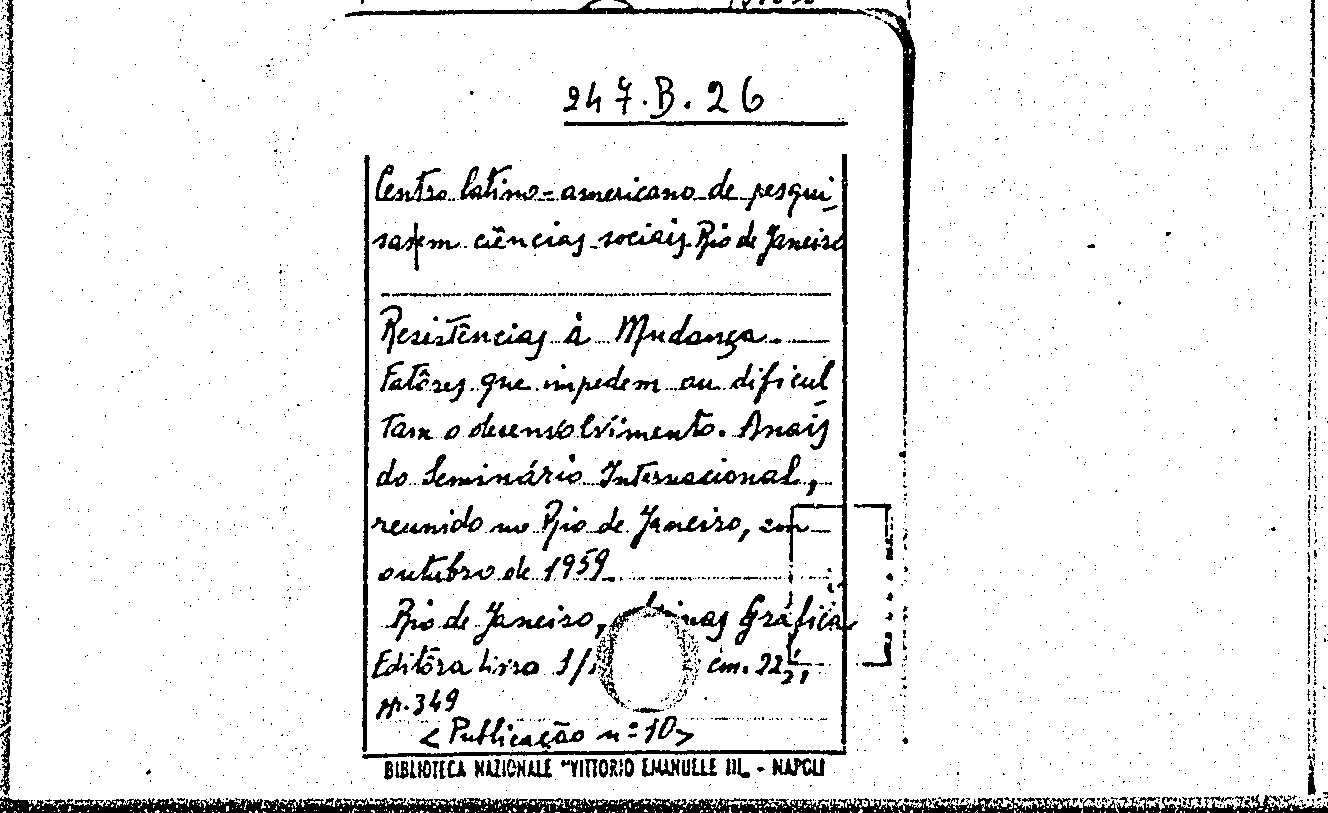 247.B.26
Centro latino-americano de pesqui
sas em ciências sociais. Rio de Janeiro
Resistências à Mudança.
Fatôres que impedem ou dificul
tam o desenvolvimento. Anais
do Seminário Internacional,
reunido no Rio de Janeiro, em
outubro de 1959.
Rio de Janeiro, Gráfica
Editôra Livro cm. 22,
349
<Publicação nº 10>
BIBLIOTECA NAZIONALE "VITTORIO EMANUELLE III. - NAPOLI